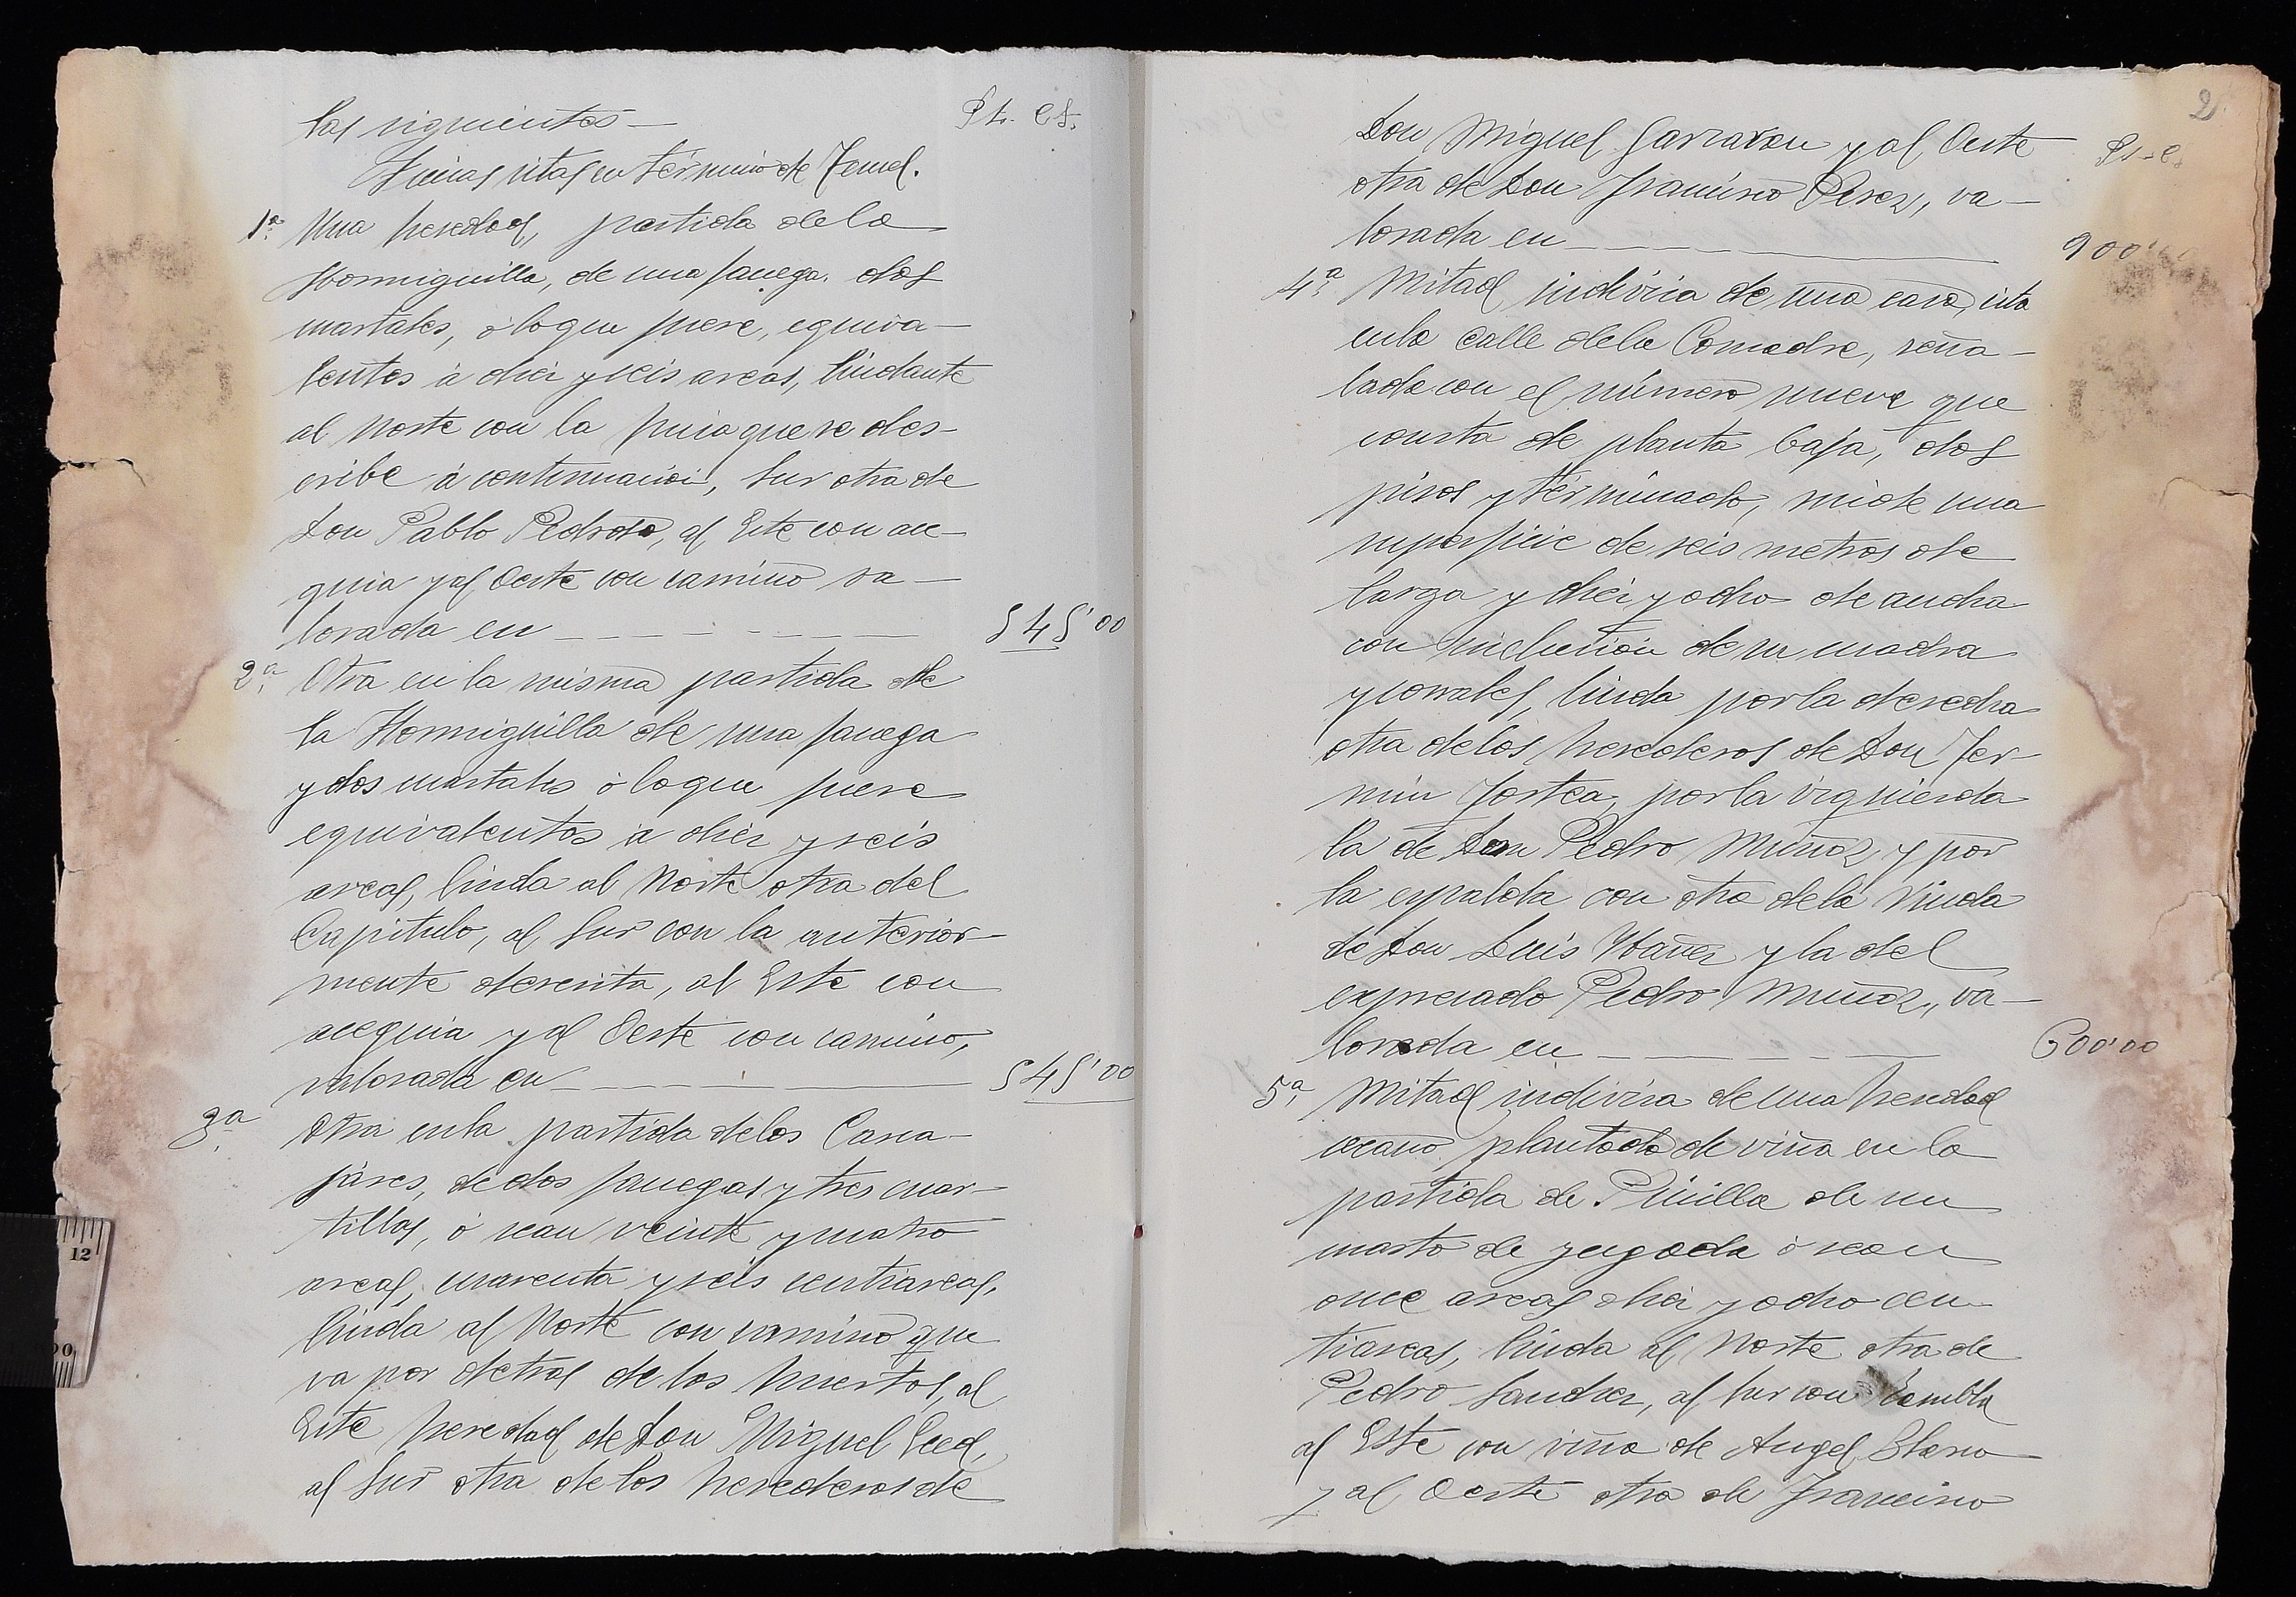 las siguientes—
Pts. Cts.
Fincas sitas en término de Teruel.
1ª. Una heredad, partida de la
Hormiguilla, de una fanega. dos
cuartales, ó lo que fuere, equiva-
lentes á diez y seis areas, lindante
al Norte con la finca que se des-
cribe á continuación, Sur otra de
Don Pablo Pedroso, al Este con ace-
quia y al Oeste con camino va-
lorada en ——— 545'00
2ª. Otra en la misma partida de
la Hormiguilla de una fanega
y dos cuartales ó lo que fuere
equivalentes á diez y seis
areas, linda al Norte otra del
Capitulo, al Sur con la anterior-
mente descrita, al Este con
acequia y al Oeste con camino,
valorada en ——— 545'00
3ª. Otra en la partida de los Casca-
jares, de dos fanegas y tres cuar-
tillas, ó sean veinte y cuatro
areas, cuarenta y seis centiareas,
linda al Norte con camino que
va por detras de los huertos, al
Este heredad de Don Miguel
al Sur otra de los herederos de
2
Don Miguel Garzaran y al Oeste
Pts. C
otra de Don Francisco Perez, va-
lorada en ——— 900'
4ª. Mitad indivisa de una casa, sita
en la calle de la Comadre, seña-
lada con el número nueve que
consta de planta baja, dos
pisos y términado, mide una
superficie de seis metros de
larga y diez y ocho de ancha
con inclusión de su cuadra
y corrales, linda por la derecha
otra de los herederos de Don Fer-
min Fortea, por la izquierda
la de Don Pedro Muñoz y por
la espalda con otra de la Viuda
de Don Luis Ybañez y la del
expresado Pedro Muñoz, va-
lorada en ——— 600'00
5ª. Mitad indivisa de una heredad
secano plantada de viña en la
partida de Pinilla de un
cuarto de yugada ó sean
once areas diez y ocho cen-
tiareas, linda al Norte otra de
Pedro Sanchez, al Sur con Rambla
al Este con viña de Angel Blasco
y al Oeste otra de Francisco